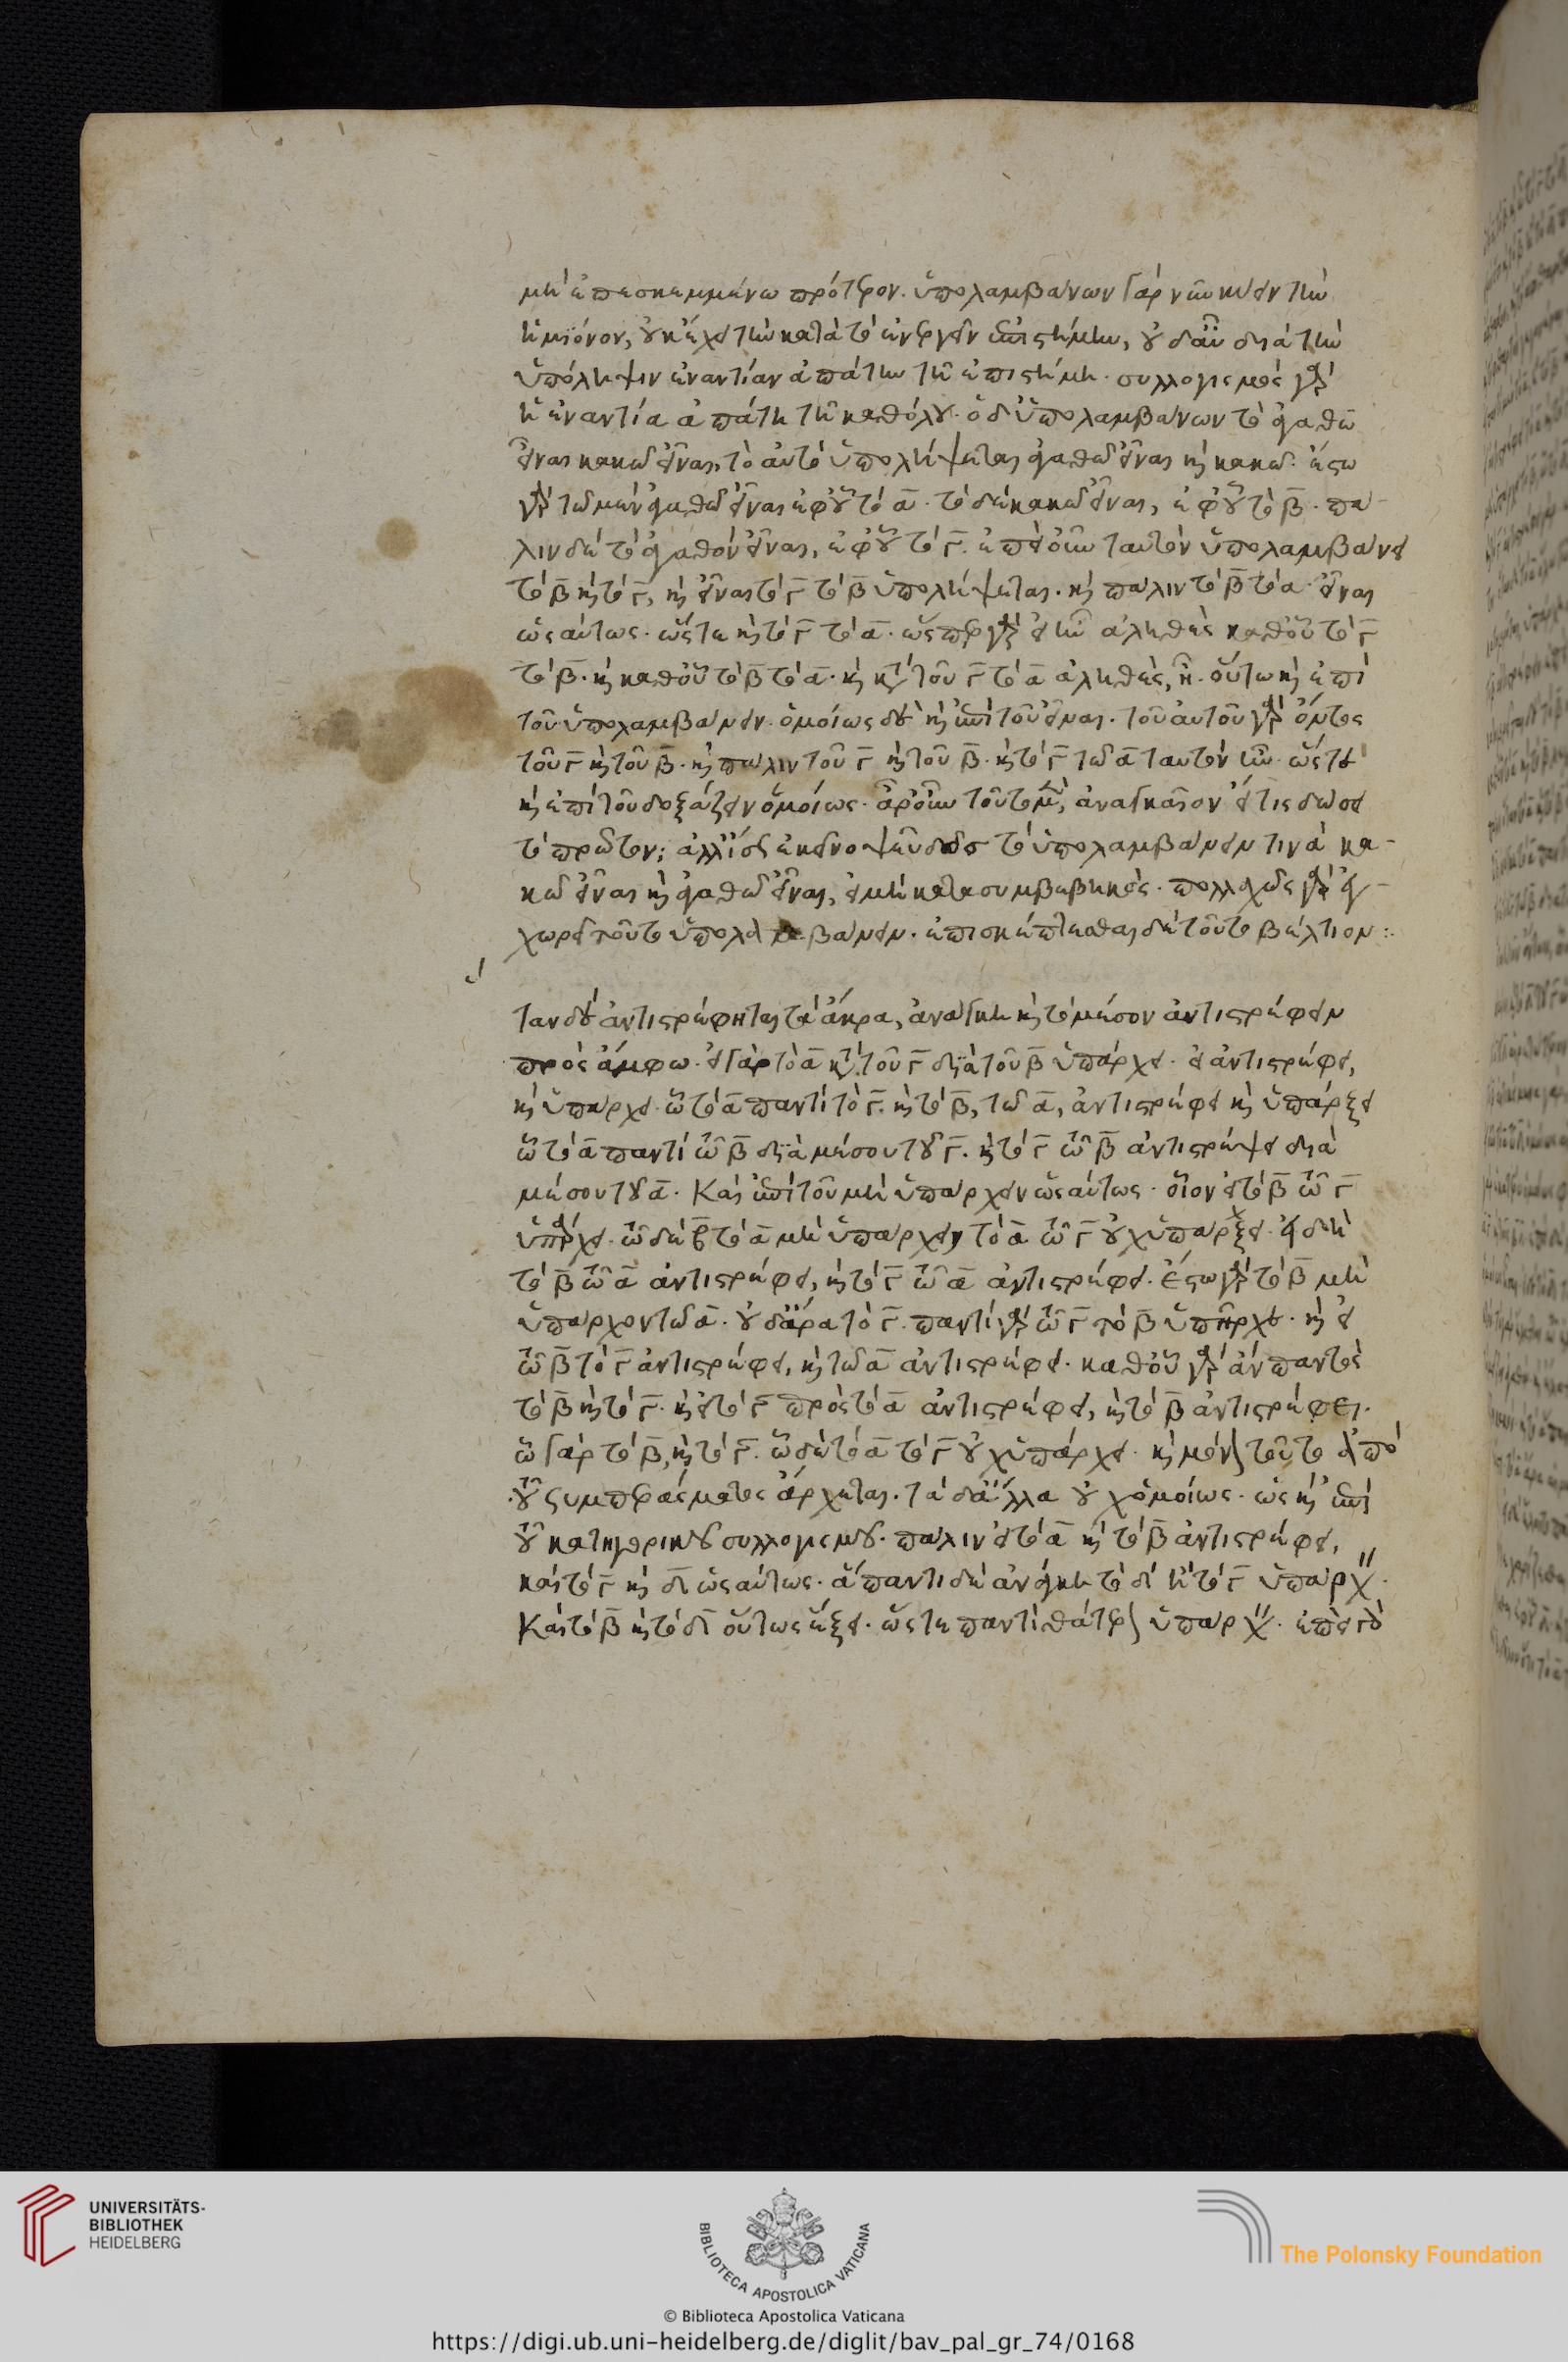 μὴ ἐπεσκεμμένω πρότερον. ὑπολαμβάνων γὰρ νῦν κύειν τὴν
ἡμίονον, οὐκ ἔχει τὴν κατὰ τὸ ἐνεργεῖν ἐπιστήμην, οὐδ' αὖ διὰ τὴν
ὑπόληψιν ἐναντίαν ἀπάτην τῇ ἐπιστήμη. συλλογισμὸς γὰρ
ἡ ἐναντία ἀπάτη τῇ καθόλου. ὁ δ' ὑπολαμβάνων τὸ ἀγαθῶ
εἶναι κακῶ εἶναι, τὸ αὐτὸ ὑπολήψεται ἀγαθῶ εἶναι καὶ κακῶ. ἔστω
γὰρ τῶ μὲν ἀγαθῶ εἶναι ἐφ' οὗ τὸ α. τὸ δὲ κακῶ εἶναι, ἐφ' οὗ τὸ β. πά-
λιν δὲ τὸ ἀγαθὸν εἶναι, ἐφ' οὗ τὸ γ. ἐπεὶ οὖν ταυτὸν ὑπολαμβάνει
τὸ β καὶ τὸ γ, καὶ εἶναι τὸ γ τὸ β ὑπολήψεται. καὶ πάλιν τὸ β τὸ α εἶναι
ὡσαύτως. ὥστε καὶ τὸ γ τὸ α. ὥσπερ γὰρ εἰ ἦν ἀληθὲς καθ' οὗ τὸ γ
τὸ β. καὶ καθ' οὗ τὸ β τὸ α. καὶ κατὰ τοῦ γ τὸ α ἀληθὲς, ἦν. οὕτω καὶ ἐπὶ
τοῦ ὑπολαμβάνειν. ὁμοίως δὲ καὶ ἐπὶ τοῦ εἶναι. τοῦ αὐτοῦ γὰρ ὄντος
τοῦ γ καὶ τοῦ β. καὶ πάλιν τοῦ γ καὶ τοῦ β. καὶ τὸ γ τῶ α ταυτὸν ἦν. ὥστε
καὶ ἐπὶ τοῦ δοξάζειν ὁμοίως. ἆρ' οὖν τοῦτο μὲν, ἀναγκαῖον εἴ τις δώσει
τὸ πρῶτον; ἀλλ' ἴσως ἐκεῖνο ψεῦδος τὸ ὑπολαμβάνειν τινὰ κα-
κῶ εἶναι καὶ ἀγαθῶ εἶναι, εἰ μὴ κατὰ συμβεβηκὸς. πολλαχῶς γὰρ ἐγ-
χωρεῖ τοῦτο ὑπολαμβάνειν. ἐπισκέπτεσθαι δὲ τοῦτο βέλτιον:.
ταν δὲ ἀντιστρέφηται τὰ ἄκρα, ἀνάγκη καὶ τὸ μέσον ἀντιστρέφειν
πρὸς ἄμφω. εἰ γὰρ τὸ α κατὰ τοῦ γ διὰ τοῦ β ὑπάρχει. εἰ ἀντιστρέφει,
καὶ ὑπάρχει ὧ τὸ α παντὶ τὸ γ. καὶ τὸ β, τῶ α, ἀντιστρέφει καὶ ὑπάρξει
ὧ τὸ α παντὶ τῶ β διὰ μέσου τοῦ γ. καὶ τὸ γ τῶ β ἀντιστρέψει διὰ
μέσου τοῦ α. Καὶ ἐπὶ τοῦ μὴ ὑπάρχειν ὡσαύτως. οἷον εἰ τὸ β τῶ γ
ὑπάρχει. τῶ δὲ β τὸ α μὴ ὑπάρχει, τὸ α τῶ γ οὐχ ὑπάρξει. εἰ δὴ
τὸ β τῶ α ἀντιστρέφει, καὶ τὸ γ τῶ α ἀντιστρέφει. ἔστω γὰρ τὸ β μὴ
ὑπάρχον τῶ α. οὐδ' ἄρα τὸ γ. παντὶ γὰρ τῶ γ τὸ β ὑπῆρχε. καὶ εἰ
τῶ β τὸ γ ἀντιστρέφει, καὶ τῶ α ἀντιστρέφει. καθ' οὗ γὰρ ἂν παντὸς
τὸ β καὶ τὸ γ. καὶ εἰ τὸ γ πρὸς τὸ α ἀντιστρέφει, καὶ τὸ β ἀντιστρέφει.
ὧ γὰρ τὸ β, καὶ τὸ γ. ὧ δὲ τὸ α τὸ γ οὐχ ὑπάρχει. καὶ μόνον τοῦτο ἀπὸ
τοῦ συμπεράσματος ἄρχεται. τὰ δ' ἄλλα οὐχ ὁμοίως. ὡς καὶ ἐπὶ
τοῦ κατηγορικοῦ συλλογισμοῦ. πάλιν εἰ τὸ α καὶ τὸ β ἀντιστρέφει,
καὶ τὸ γ καὶ δ ὡσαύτως. ἅπαντι δὲ ἀνάγκη τὸ α ἢ τὸ γ ὑπάρχ.
Καὶ τὸ β καὶ τὸ δ οὕτως ἕξει. ὥστε παντὶ θάτερον ὑπάρχ. ἐπεὶ γὰρ
UNIVERSITÄTS-
BIBLIOTHEK
HEIDELBERG
BIBLIOTECA APOSTOLICA VATICANA
The Polonsky Foundation
© Biblioteca Apostolica Vaticana
https://digi.ub.uni-heidelberg.de/diglit/bav_pal_gr_74/0168